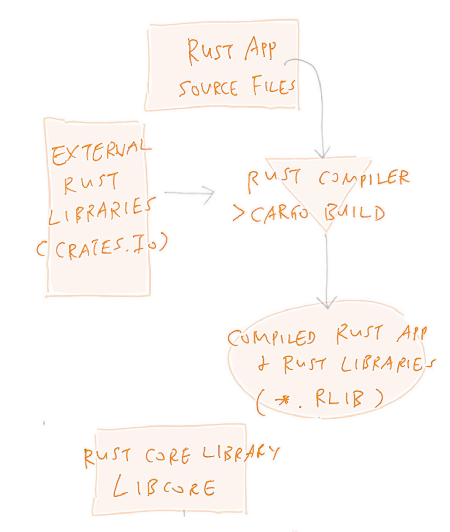 RUST APP
SOURCE FILES
EXTERNAL
RUST
LIBRARIES
(CRATES.IO)
RUST COMPILER
>CARGO BUILD
COMPILED RUST APP
& RUST LIBRARIES
(*.RLIB)
RUST CORE LIBRARY
LIBCORE